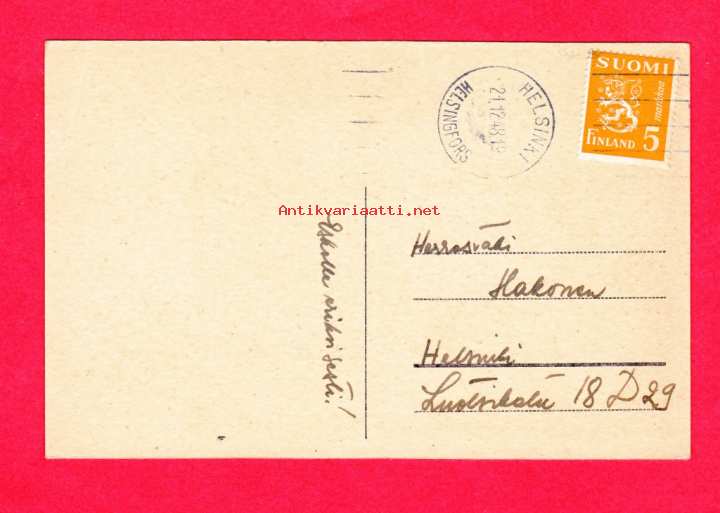 SUOMI
markkaa
FINLAND 5
HELSINKI
21.12.48.19
HELSINGFORS
Antikvariaatti.net
Eskolle eriksi sesti!
Herrasväki
Hakonen
Helsinki
Luotsikatu 18 D 29